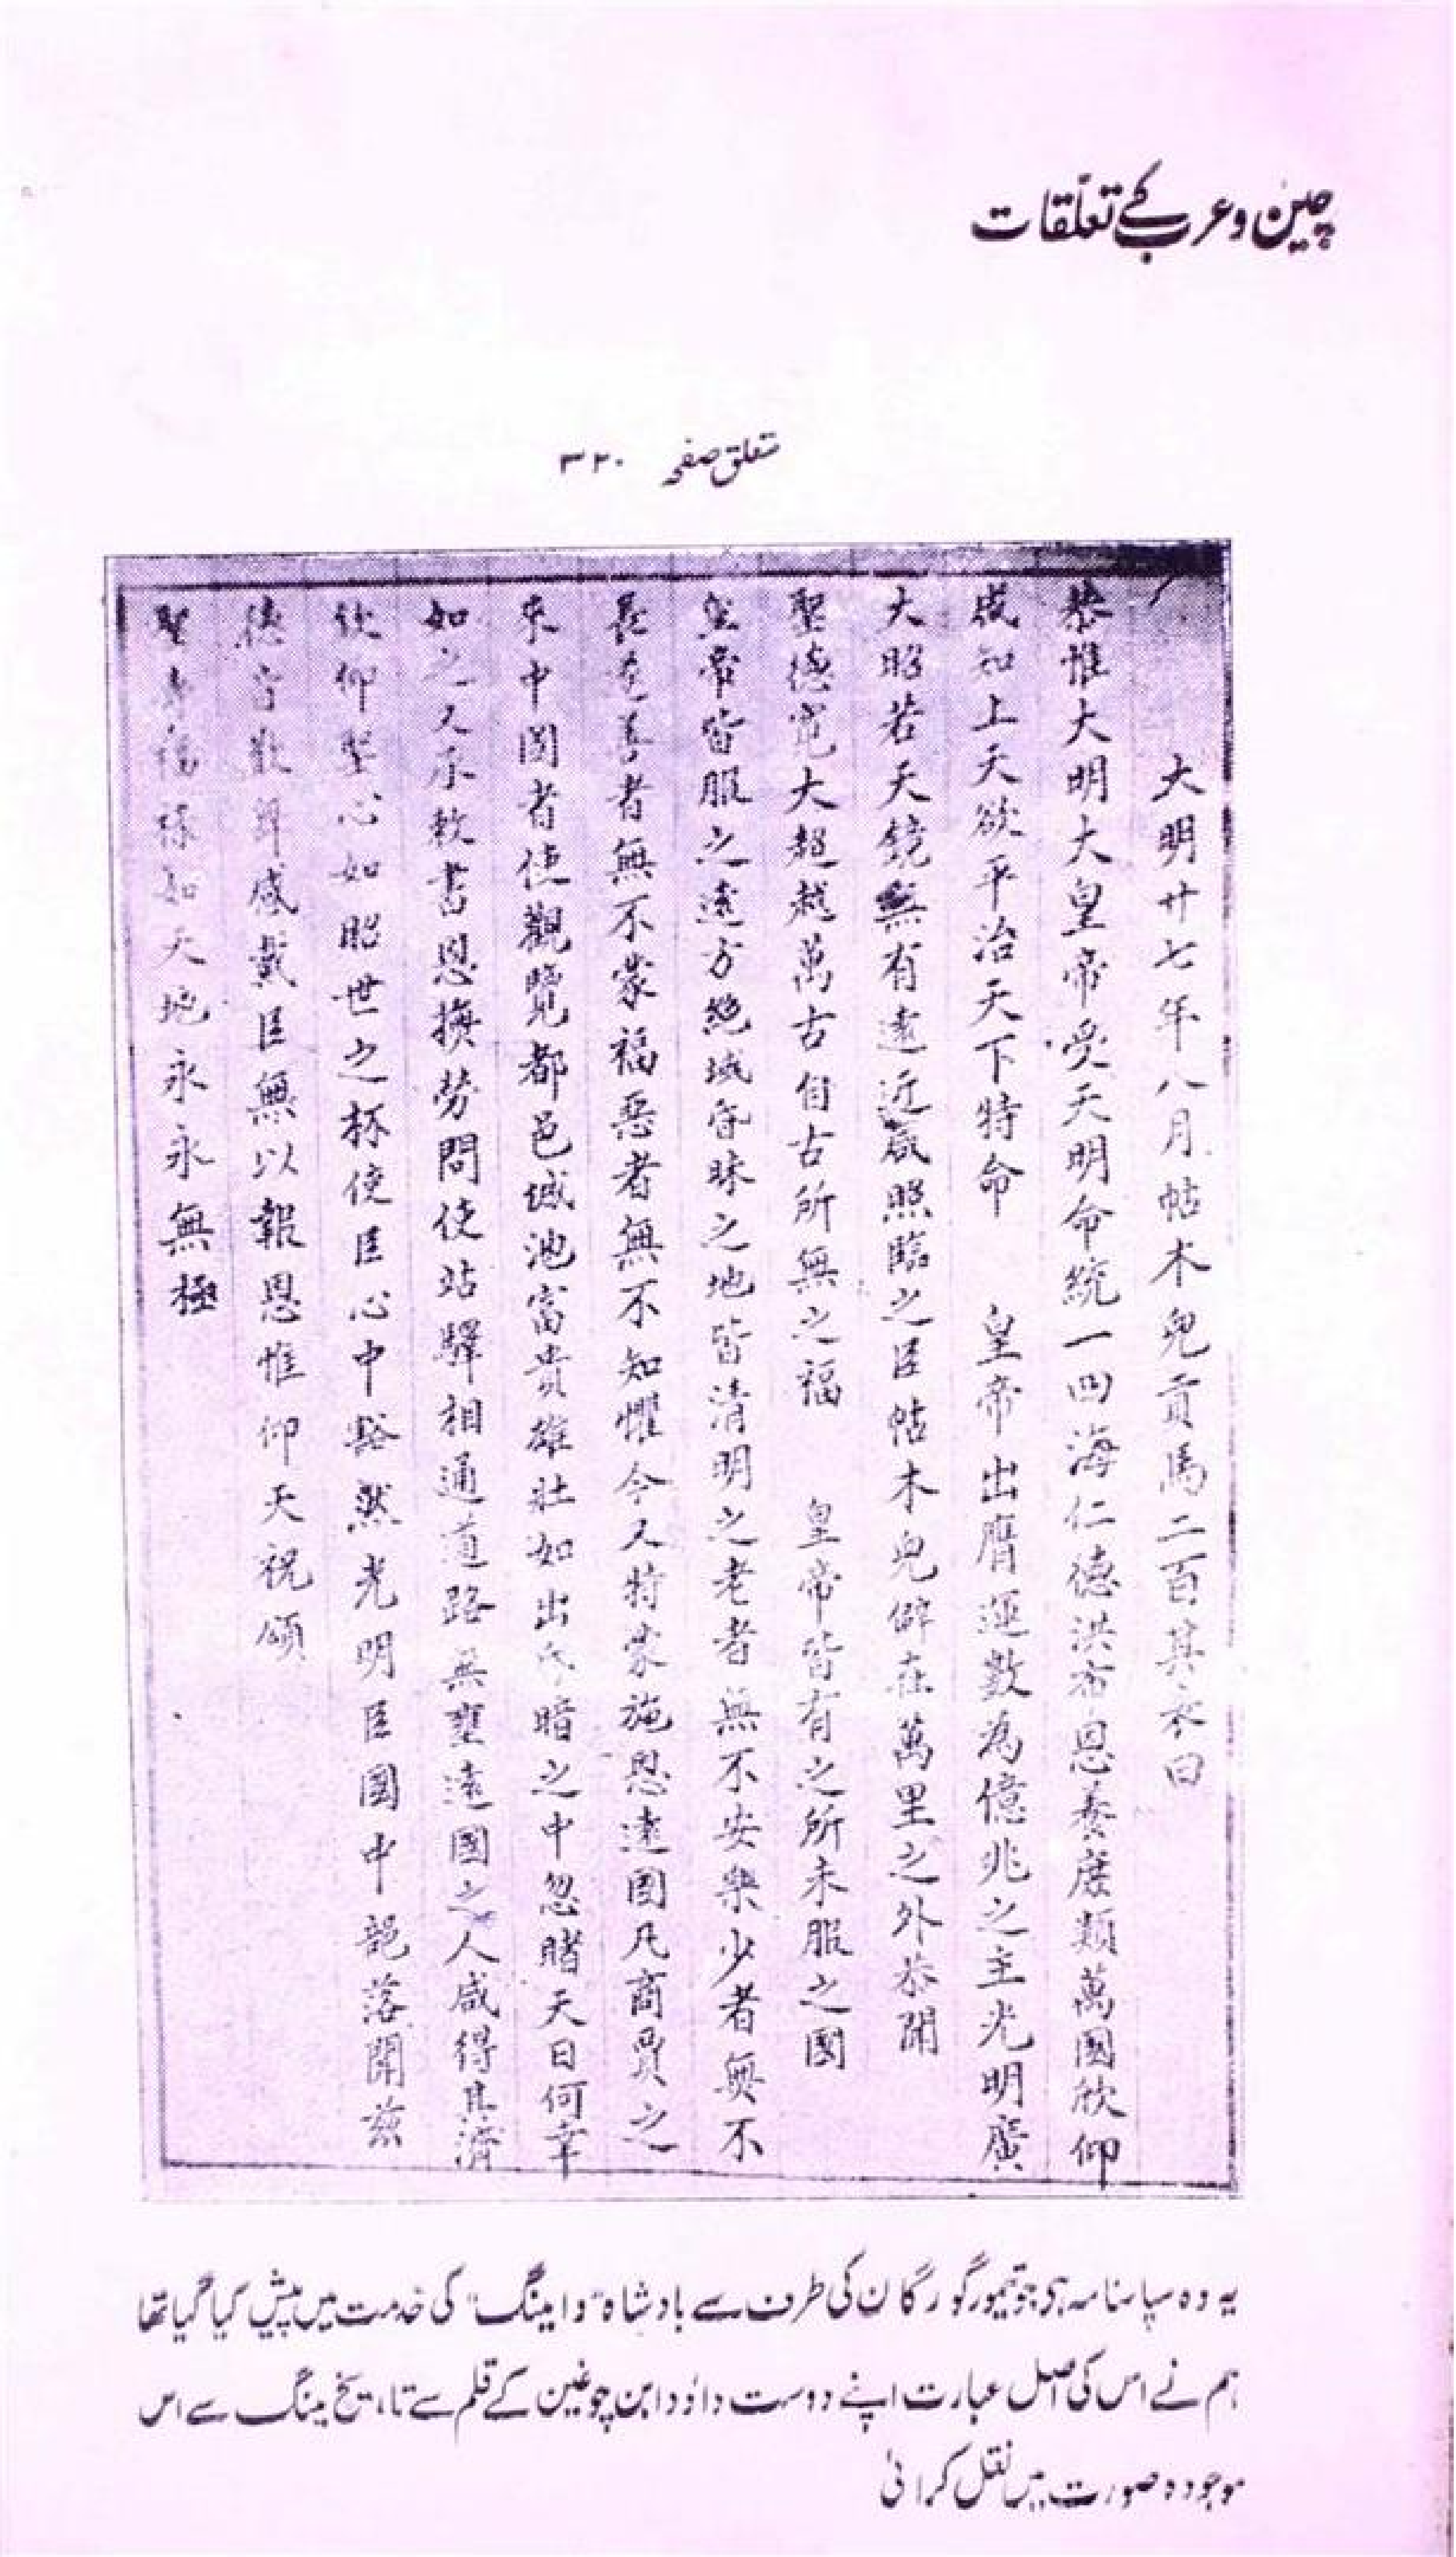 چین و عرب کے تعلّقات
متعلق صفحہ ۳۲۰
大明廿七年八月帖木兒貢馬二百其表曰
恭惟大明大皇帝受天明命統一四海仁德洪布恩養庶類萬國欣仰
咸知上天欲平治天下特命 皇帝出膺運數為億兆之主光明廣
大昭若天鏡無有遠近咸照臨之臣帖木兒僻在萬里之外恭聞
聖德寬大超越萬古自古所無之福 皇帝皆有之所未服之國
皇帝皆服之遠方絕域昏昧之地皆清明之老者無不安樂少者無不
長遂善者無不蒙福惡者無不知懼今又特蒙施恩遠國凡商賈之
來中國者使觀覽都邑城池富貴雄壯如出昏暗之中忽睹天日何幸
如之又承敕書恩撫勞問使站驛相通道路無壅遠國之人咸得其濟
欽仰聖心如昭世之杯使臣心中豁然光明臣國中部落聞茲
德音歡舞感戴臣無以報恩惟仰天祝頌
聖壽福祿如天地永永無極
یہ وہ سپاسنامہ ہی جو تیمور گورگان کی طرف سے بادشاہ "وامینگ" کی خدمت میں پیش کیا گیا تھا
ہم نے اس کی اصل عبارت اپنے دوست داؤد ابن چوغین کے قلم سے تاریخ مینگ سے اس
موجودہ صورت میں نقل کرائی